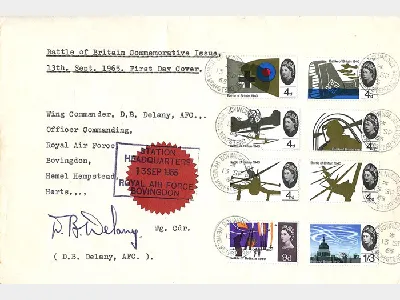 Battle of Britain Commemorative Issue,
13th. Sept. 1965. First Day Cover.
Wing Commander, D.B. Delany, AFC..,
Officer Commanding,
Royal Air Force
Bovingdon,
Hemel Hempstead,
Herts....,
STATION
HEADQUARTERS
13 SEP 1965
ROYAL AIR FORCE
BOVINGDON
D.B. Delany
Wg. Cdr.
( D.B. Delany, AFC. ).
4d
4d
4d
4d
4d
4d
9d
1/3